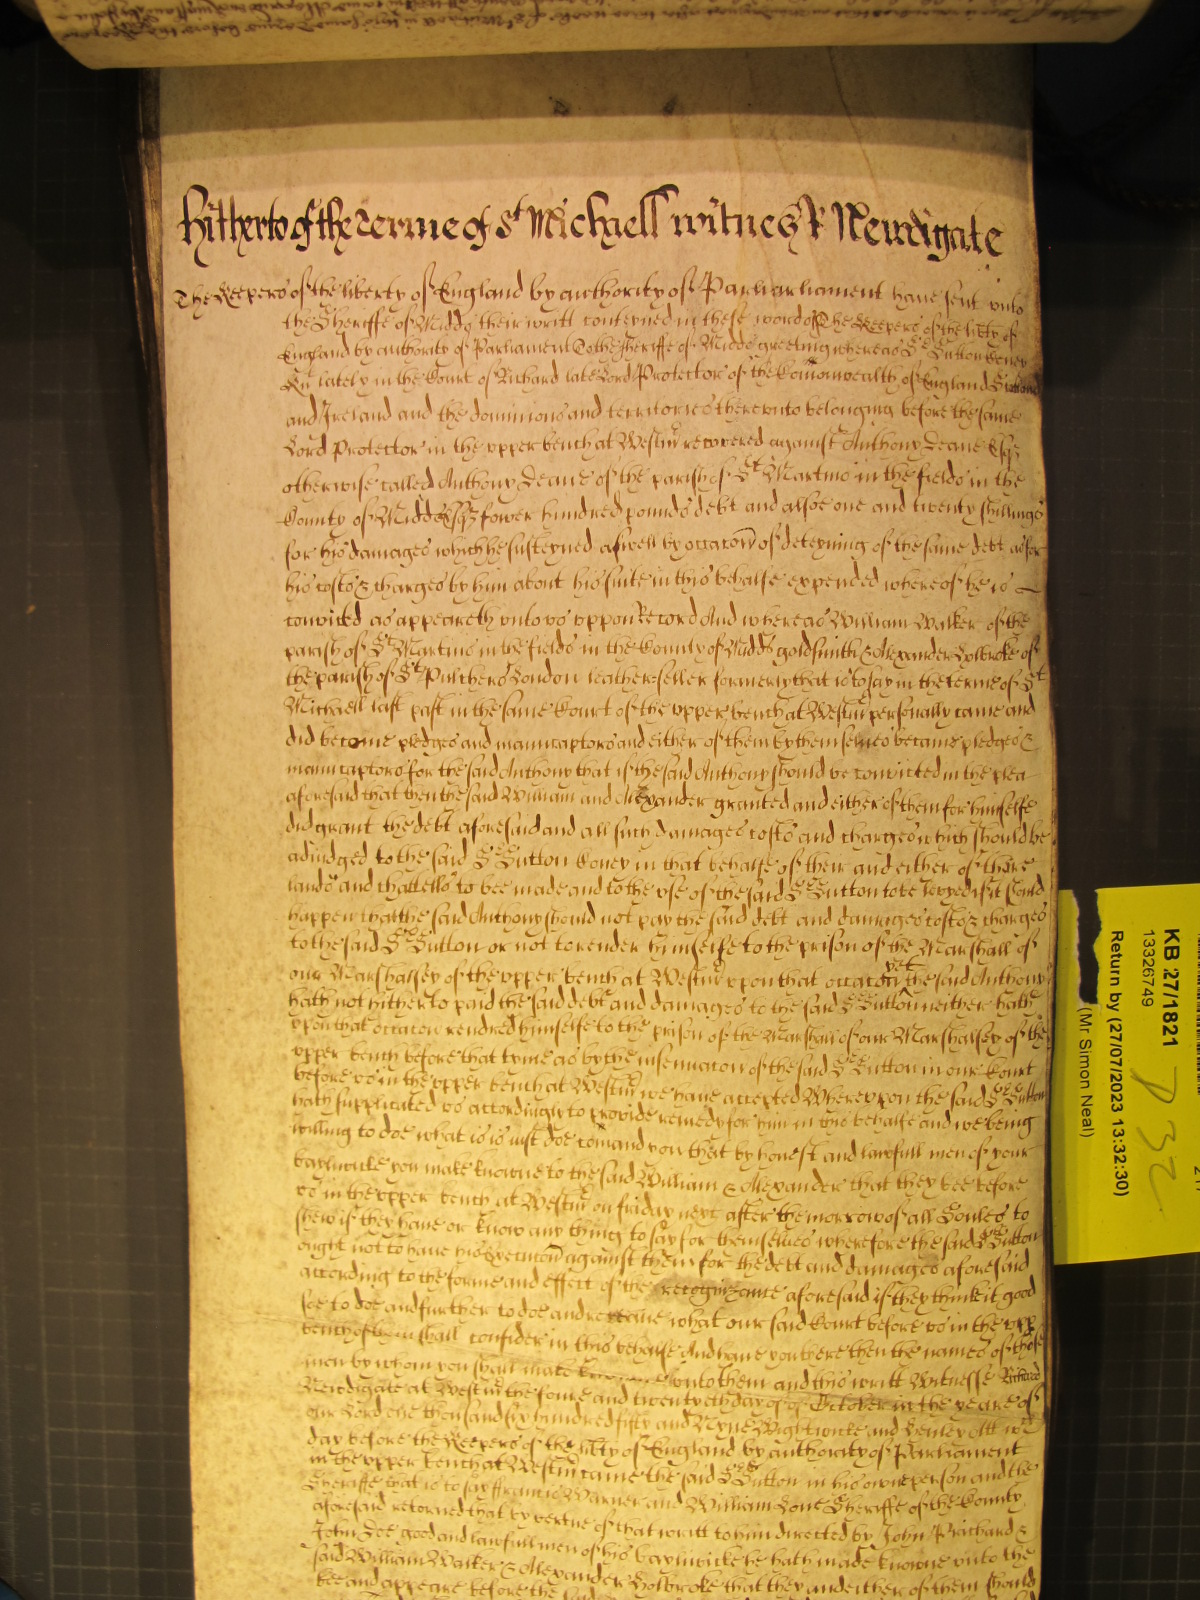 Hitherto of the Terme of St Michaell witnes R Newdigate
The Keepers of the liberty of England by authority of Parliarliament have sent unto
the Sheriffe of Midds their writt conteyned in these words The Keepers of the lib'ty of
England by authority of Parliament To the Sheriffe of Midds greeting whereas Sr Sutton Coney
Kt lately in the Court of Richard late Lord Protector of the Comonwealth of England Scotland
and Ireland and the dominions and territories thereunto belonging before the same
Lord Protector in the upper bench at Westmr recovered against Anthony Deane Esqr
otherwise called Anthony Deane of the parish of St Martins in the fields in the
County of Midds Esqr fower hundred pounds debt and alsoe one and twenty shillings
for his damages which he susteyned aswell by occacon of deteyning of the same debt as for
his costs & charges by him about his suite in this behalfe expended whereof he is
convicted as appeareth unto us uppon Record And whereas William Walker of the
parish of St Martins in the fields in the County of Midds goldsmith & Alexander Holbroke of
the parish of St Pulchers London leatherseller formerly that is to say in the terme of St
Michaell last past in the same Court of the upper bench at Westmr personally came and
did become pledges and manucaptors and either of them by themselves became pledges &
manucaptors for the said Anthony that if the said Anthony should be convicted in the plea
aforesaid that then the said William and Alexander granted and either of them for himselfe
did grant the debt aforesaid and all such damages costs and charges which should be
adiudged to the said Sr Sutton Coney in that behalfe of their and either of there
lands and chattells to bee made and to the use of the said Sr Sutton to be levyed if it should
happen that the said Anthony should not pay the said debt and damages costs & charges
to the said Sr Sutton or not to render himselfe to the prison of the Marshall of
our Marshalsey of the upper bench at Westmr upon that occacon yet the said Anthony
hath not hitherto paid the said debt and damages to the said Sr Sutton neither hath
upon that occacon rendred himselfe to the prison of the Marshall of our Marshalsey of the
upper bench before that tyme as by the insinuacon of the said Sr Sutton in our Court
before us in the upper bench at Westmr we have accepted Whereupon the said Sr Sutton
hath supplicated us accordingly to provide remedy for him in this behalfe and we being
willing to doe what is is iust doe comand you that by honest and lawfull men of your
baylwicke you make knowne to the said William & Alexander that they bee before
us in the upper bench at Westmr on friday next after the morrow of all Soules to
shew if they have or know any thing to say for themselves wherefore the said Sr Sutton
ought not to have his Execucon against them for the debt and damages aforesaid
according to the forme and effect of the recognizance aforesaid if they thinke it good
soe to doe and further to doe and receive what our said Court before us in the upp
bench of them shall consider in this behalfe And have you there then the names of those
men by whom you shall make knowne unto them and this writt Witnesse Richard
Newdigate at Westmr the fower and twentyeth day of October in the yeare of
our Lord one thousand six hundred fifty and Nyne Wightwicke and Henley Att wch
day before the Keepers of the lib'ty of England by authority of Parliament
in the upper bench at Westmr came the said Sr Sutton in his owne person and the
Sheriffe that is to say ffrancis Warner and William Love Sheriffe of the County
aforesaid retorned that by vertue of that writt to him directed by John Prichard &
John Doe good and lawfull men of his baylwicke he hath made knowne unto the
said William Walker & Alexander Holbroke that they and either of them should
bee and appeare before the
KB 27/1821
13326749
Return by (27/07/2023 13:32:30)
(Mr Simon Neal)